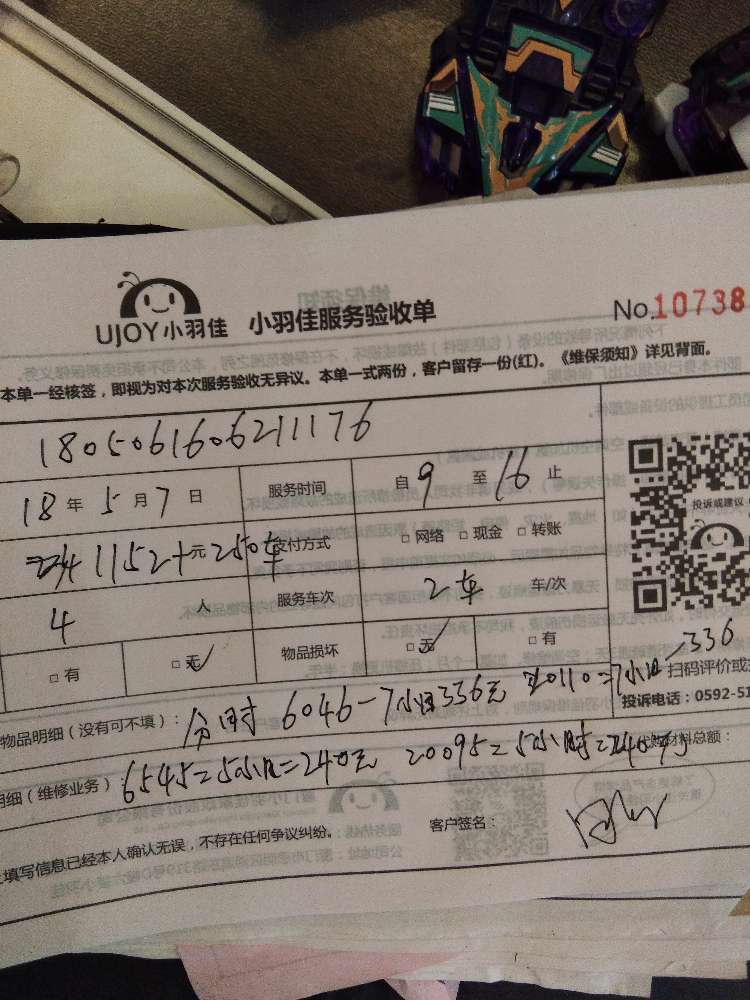 UJOY小羽佳 小羽佳服务验收单 No.10738
本单一经核签，即视为对本次服务验收无异议。本单一式两份，客户留存一份(红)。《维保须知》详见背面。
1805061606211176
18年5月7日 服务时间 自9至16止
1152+元250车 支付方式 □网络 □现金 □转账
4人 服务车次 2车 车/次
□有 □无✓ 物品损坏 □无✓ □有
投诉或建议
物品明细（没有可不填）： 分时 6046-7小时336元 20110=7小时/336
扫码评价或
投诉电话：0592-51
明细（维修业务） 6545=5小时=240元 20095=5小时=240 材料总额：
填写信息已经本人确认无误，不存在任何争议纠纷。 客户签名：